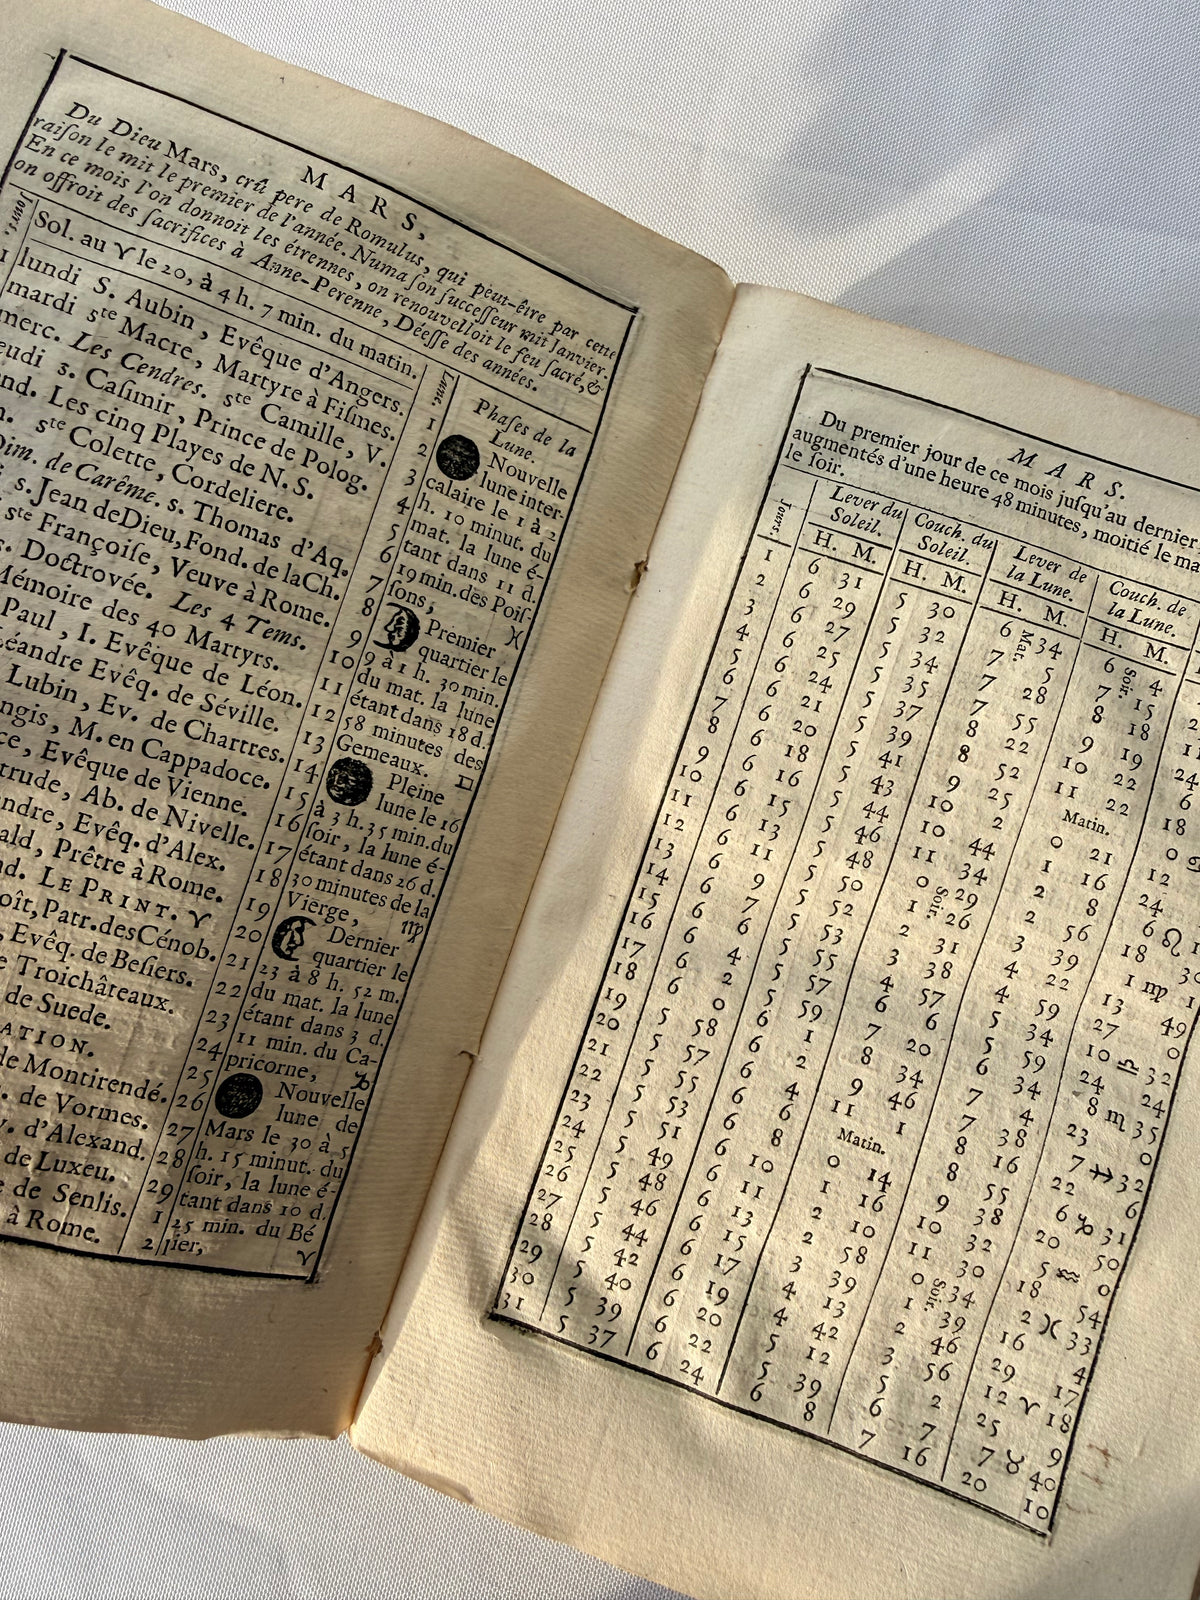 MARS,
Du Dieu Mars, crû pere de Romulus, qui peut-être par cette
raiſon le mit le premier de l'année. Numa ſon ſucceſſeur mit Janvier.
En ce mois l'on donnoit les étrennes, on renouvelloit le feu ſacré, &
on offroit des ſacrifices à Anne-Perenne, Déeſſe des années.
Jours.
Sol. au ♈ le 20, à 4 h. 7 min. du matin.
1 lundi S. Aubin, Evêque d'Angers.
mardi ste Macre, Martyre à Fiſmes.
merc. Les Cendres. ste Camille, V.
jeudi s. Caſimir, Prince de Polog.
Les cinq Playes de N. S.
ste Colette, Cordeliere.
Dim. de Carême. s. Thomas d'Aq.
s. Jean de Dieu, Fond. de la Ch.
ste Françoiſe, Veuve à Rome.
s. Doctrovée. Les 4 Tems.
Mémoire des 40 Martyrs.
Paul, I. Evêque de Léon.
Léandre Evêq. de Séville.
Lubin, Ev. de Chartres.
M. en Cappadoce.
Evêque de Vienne.
Ab. de Nivelle.
Evêq. d'Alex.
Prêtre à Rome.
LE PRINT. ♈
Patr. des Cénob.
Evêq. de Beſiers.
Troichâteaux.
de Suede.
de Montirendé.
de Vormes.
d'Alexand.
de Luxeu.
de Senlis.
à Rome.
Lune.
1
2
3
4
5
6
7
8
9
10
11
12
13
14
15
16
17
18
19
20
21
22
23
24
25
26
27
28
29
1
2
Phaſes de la
Lune.
Nouvelle
lune inter-
calaire le 1 à 2
h. 10 minut. du
mat. la lune é-
tant dans 11 d.
19 min. des Poiſ-
ſons, ♓
Premier
quartier le
9 à 1 h. 30 min.
du mat. la lune
étant dans 18 d.
58 minutes des
Gemeaux. ♊
Pleine
lune le 16
à 3 h. 35 min. du
ſoir, la lune é-
tant dans 26 d.
30 minutes de la
Vierge, ♍
Dernier
quartier le
23 à 8 h. 52 m.
du mat. la lune
étant dans 3 d.
11 min. du Ca-
pricorne, ♑
Nouvelle
lune de
Mars le 30 à 5
h. 15 minut. du
ſoir, la lune é-
tant dans 10 d.
25 min. du Bé
lier, ♈
MARS.
Du premier jour de ce mois juſqu'au dernier
augmentés d'une heure 48 minutes, moitié le
le ſoir.
Jours. Lever du Soleil. Couch. du Soleil. Lever de la Lune. Couch. de la Lune.
H. M. H. M. H. M. H. M.
1 6 31 5 30 6 Mat. 34 6 Soir. 4
2 6 29 5 32 7 5 7 15
3 6 27 5 34 7 28 8 18
4 6 25 5 35 7 55 9 19 24
5 6 24 5 37 8 22 10 22 6
6 6 21 5 39 8 52 11 22 18
7 6 20 5 41 9 25 Matin. 0
8 6 18 5 43 10 2 0 21 12
9 6 16 5 44 10 44 1 16 24
10 6 15 5 46 11 34 2 8 6 ♌
11 6 13 5 48 0 Soir. 29 2 56 18
12 6 11 5 50 1 26 3 39 1 ♍
13 6 9 5 52 2 31 4 22 13 49
14 6 7 5 53 3 38 4 59 27 0
15 6 6 5 55 4 57 5 34 10 ♎ 32
16 6 4 5 57 6 6 5 59 24 24
17 6 2 5 59 7 20 6 34 8 ♏ 35
18 6 0 6 1 8 34 7 4 23 0
19 5 58 6 2 9 46 7 38 7 ♐ 32
20 5 57 6 4 11 1 8 16 22 6
21 5 55 6 6 Matin. 8 55 6 ♑ 31
22 5 53 6 8 0 14 9 38 20 50
23 5 51 6 10 1 16 10 32 5 ♒ 0
24 5 49 6 11 2 10 11 30 18 54
25 5 48 6 13 2 58 0 Soir. 34 2 ♓ 33
26 5 46 6 15 3 39 1 39 16 4
27 5 44 6 17 4 13 2 46 29 17
28 5 42 6 19 4 42 3 56 12 ♈ 18
29 5 40 6 20 5 12 5 2 25 9
30 5 39 6 22 5 39 6 7 7 ♉ 40
31 5 37 6 24 6 8 7 16 20 10